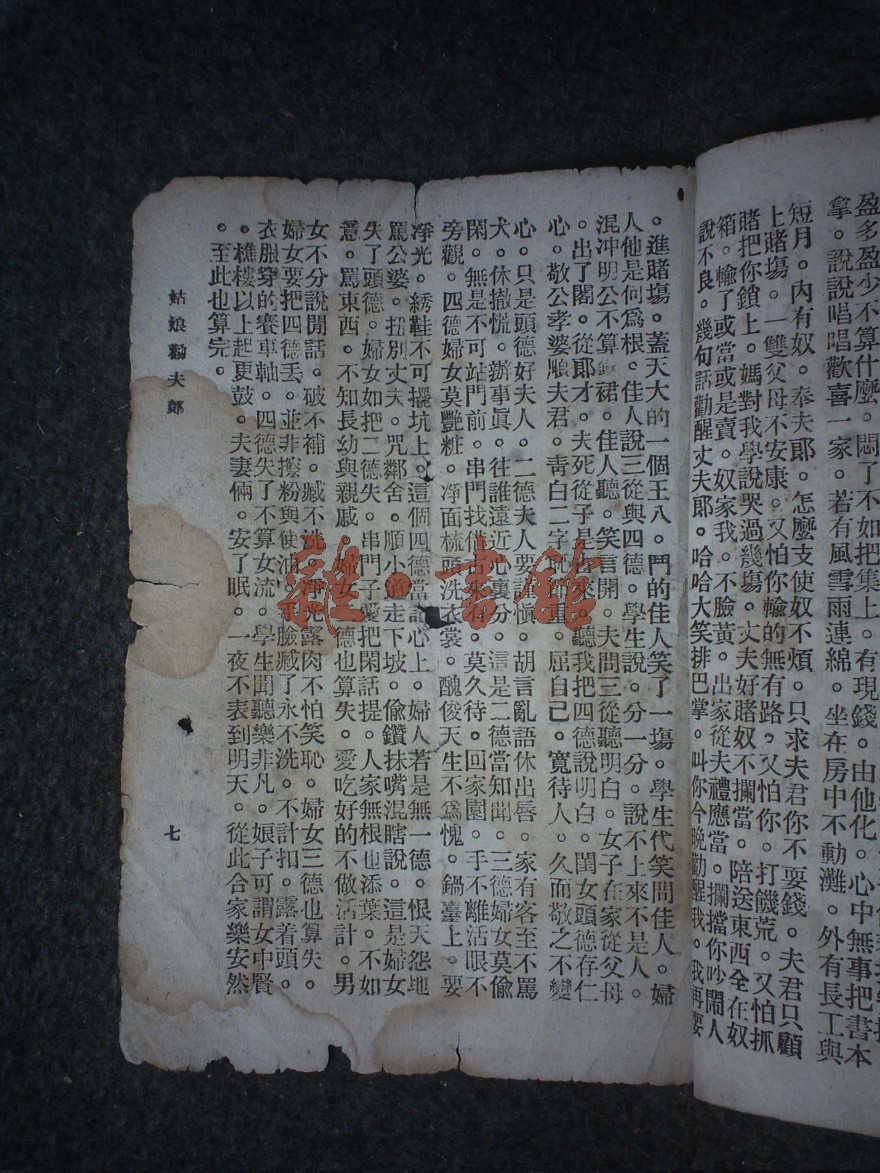 盈多盈少不算什麼。悶了不如把集上。有現錢。由他化。心中無事把書本
拿。說說唱唱歡喜一家。若有風雪雨連綿。坐在房中不動灘。外有長工與
短月。內有奴。奉夫郞。怎麼支使奴不煩。只求夫君你不耍錢。夫君只顧
上賭塲。一雙父母不安康。又怕你輸的無有路。又怕你。打饑荒。又怕抓
賭把你鎖上。媽對我學說哭過幾塲。丈夫好賭奴不攔當。陪送東西全在奴
箱。輸了或當或是賣。奴家我。不臉黃。出家從夫禮應當。攔擋你吵鬧人
說不良。幾句話勸醒丈夫郞。哈哈大笑排巴掌。叫你今晚勸醒我。我再要
。進賭塲。蓋天大的一個王八。鬥的佳人笑了一塲。學生代笑問佳人。婦
人他是何爲根。佳人說三從與四德。學生說。分一分。說不上來不是人。
混沖明公不算裙。佳人聽。笑言開。夫問三從聽明白。女子在家從父母
。出了閣。從郞才。夫死從子是出來。聽我把四德說明白。閨女頭德存仁
心。敬公孝婆順夫君。靑白二字恥爲重。屈自己。寬待人。久而敬之不變
心。只是頭德好夫人。二德夫人要謹愼。胡言亂語休出唇。家有客至不罵
犬。休撒慌。辦事眞。往誰遠近心裏分。這是二德當知聞。三德婦女莫偷
閑。無是不可站門前。串門找借古來有。莫久待。回家園。手不離活眼不
旁觀。四德婦女莫艷粧。凈面梳頭洗衣裳。醜俊天生不爲愧。鍋臺上。要
凈光。綉鞋不可擺坑上。這個四德當記心上。婦人若是無一德。恨天怨地
罵公婆。扭別丈夫。咒鄰舍。順小道走下坡。偷鑽抹嘴混瞎說。這是婦女
失了頭德。婦女如把二德失。串門子愛把閑話提。人家無根也添葉。不如
意。罵東西。不知長幼與親戚。婦女二德也算失。愛吃好的不做活計。男
女不分說閒話。破不補。臧不洗。淨光露肉不怕笑恥。婦女三德也算失。
婦女要把四德丟。並非擦粉與使油。手臉臧了永不洗。不計扣。露着頭。
衣服穿的賽車軸。四德失了不算女流。學生聞聽樂非凡。娘子可謂女中賢
。樵樓以上起更鼓。夫妻倆。安了眠。一夜不表到明天。從此合家樂安然
。至此也算完。
姑娘勸夫郞
七
雜·書館